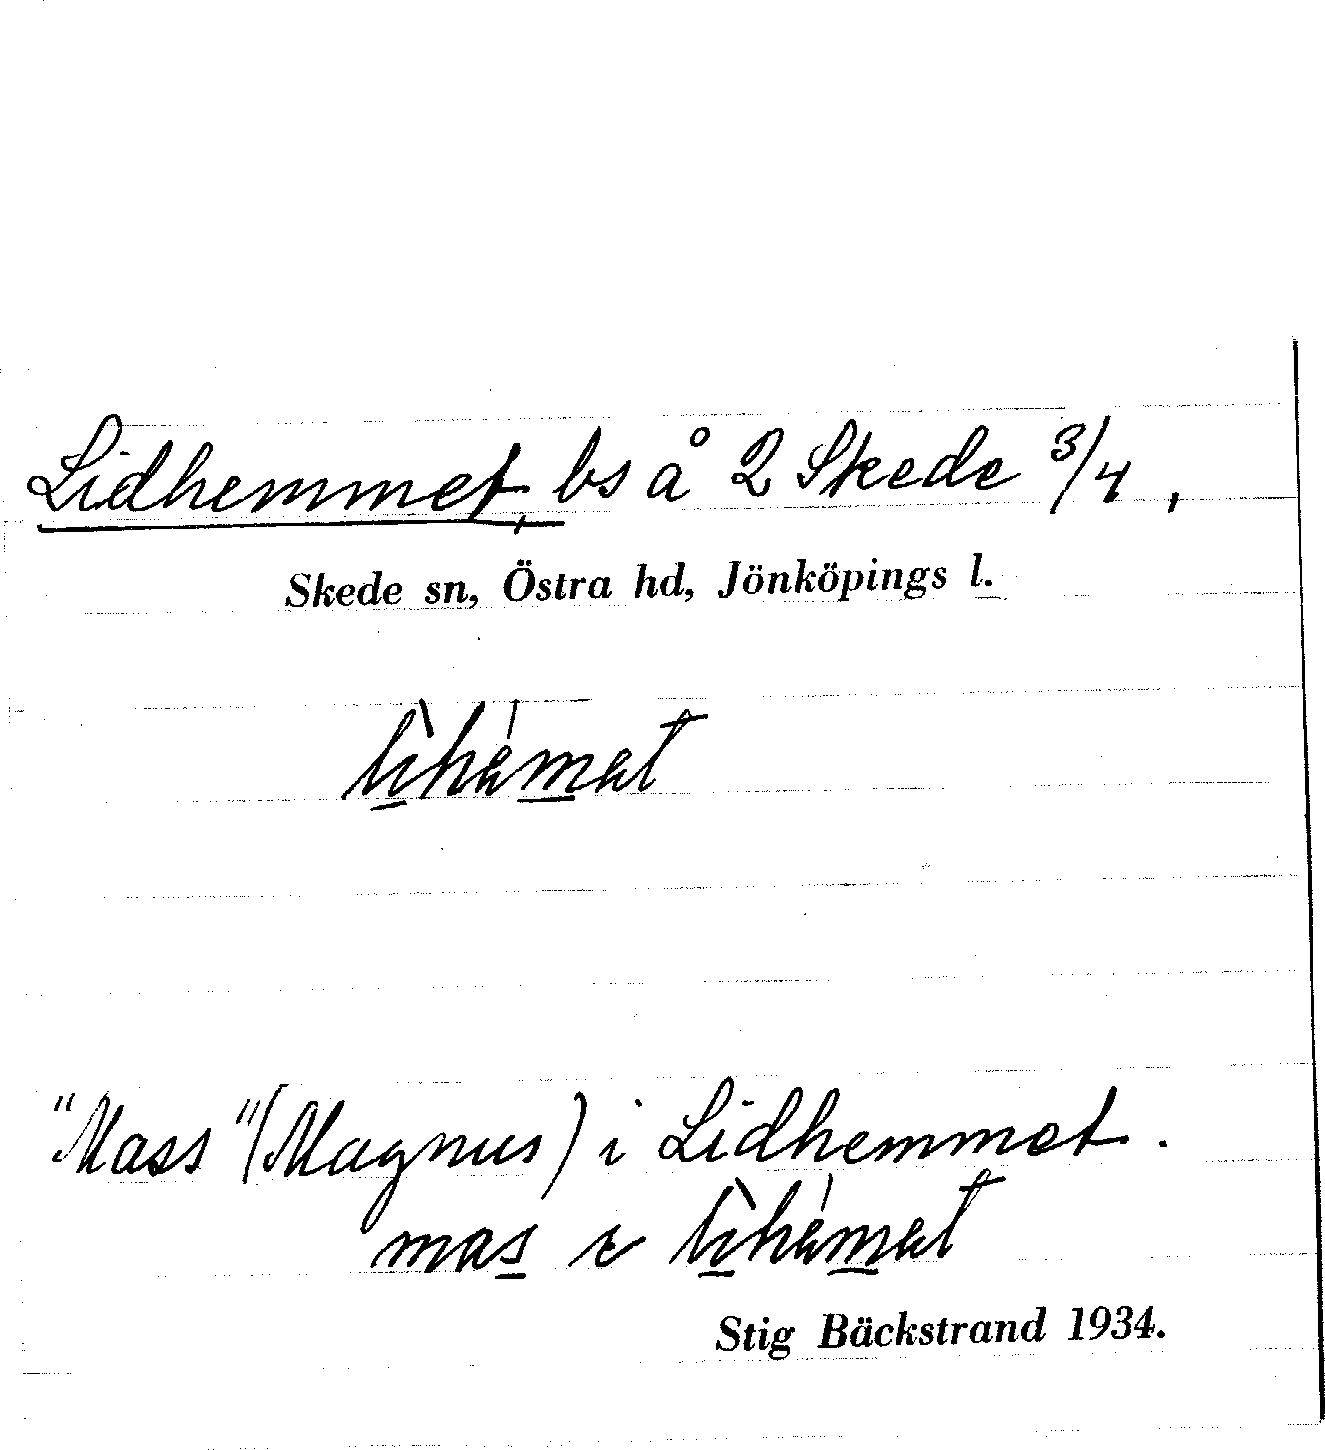 Lidhemmet, bs å 2 Skede 3/4,
Skede sn, Östra hd, Jönköpings l.
"Mass" (Magnus) i Lidhemmet.
mas
Stig Bäckstrand 1934.